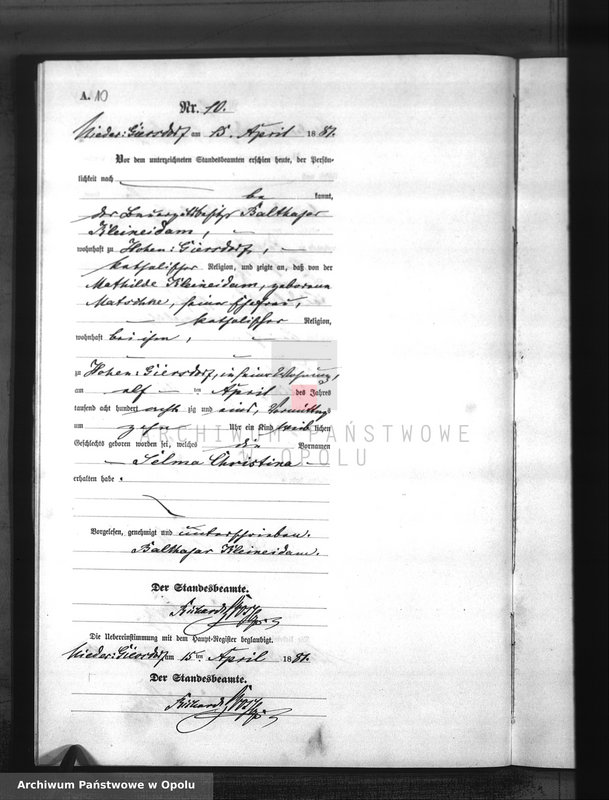 A. 10
Nr. 10.
Nieder: Giersdorf am 15. April 1881.
Vor dem unterzeichneten Standesbeamten erschien heute, der Persön-
lichkeit nach
be kannt,
der Bauergutsbesitzer Balthasar
Kleineidam,
wohnhaft zu Hohen: Giersdorf,
katholischer Religion, und zeigte an, daß von der
Mathilde Kleineidam, geborene
Matschke, seiner Ehefrau,
katholischer Religion,
wohnhaft bei ihm,
zu Hohen: Giersdorf, in seiner Wohnung,
am elf ten April des Jahres
tausend acht hundert acht zig und eins, Vormittags
um zehn Uhr ein Kind weib lichen
Geschlechts geboren worden sei, welches die Vornamen
Selma Christina
erhalten habe.
Vorgelesen, genehmigt und unterschrieben.
Balthasar Kleineidam.
Der Standesbeamte.
Die Uebereinstimmung mit dem Haupt-Register beglaubigt.
Nieder: Giersdorf am 15 ten April 1881.
Der Standesbeamte.
ARCHIWUM PAŃSTWOWE
W OPOLU
Archiwum Państwowe w Opolu